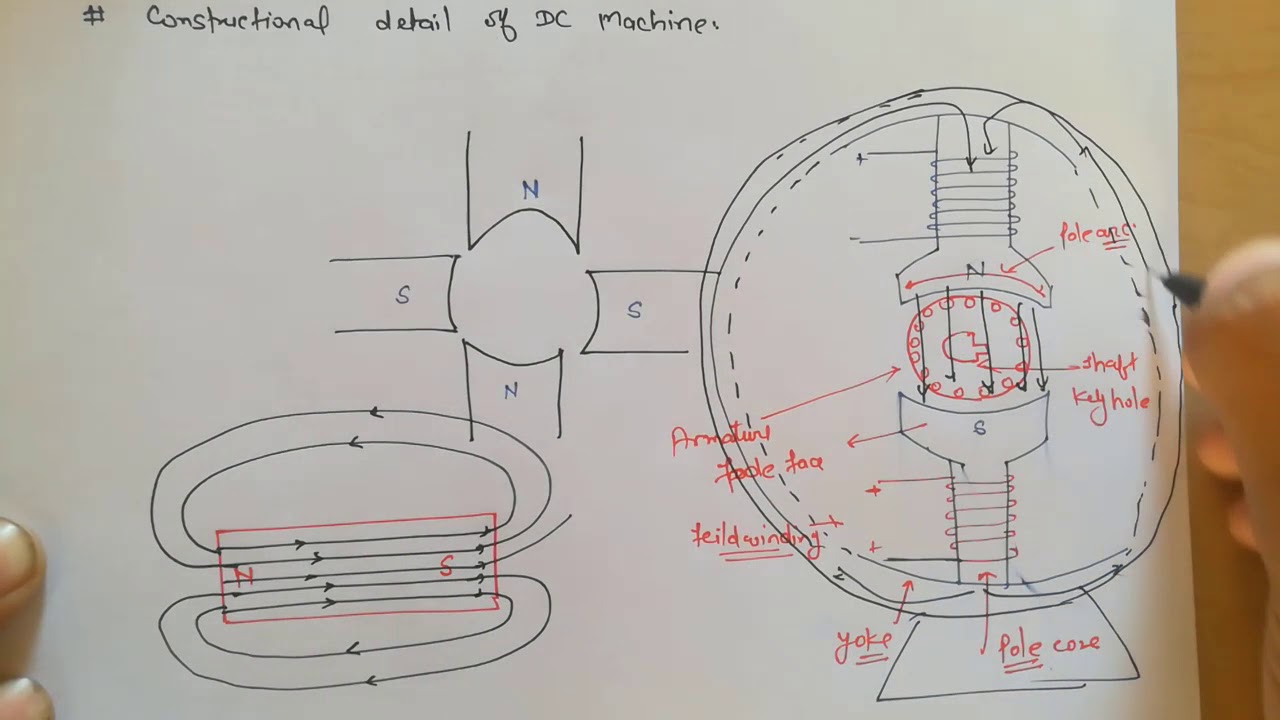 # Constructional detail of DC Machine.
N
S
S
N
N
S
+
Pole arc.
N
Shaft
Key hole
Armature
S
Pole face
+
Feild winding
+
yoke
Pole core